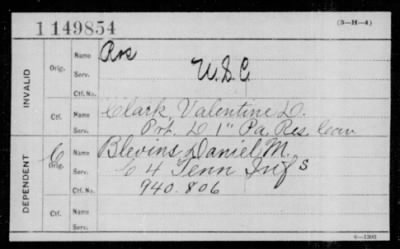 1149854
(3-H-4)
INVALID
Orig.
Name
Serv.
Ctf. No.
U.S.C.
Name Clark, Valentine D.
Serv. Pvt. D 1" Pa. Res. Cav
Ctf. No.
DEPENDENT
Orig. C
Name Blevins Daniel M.
Serv. C 4 Tenn Inf S
Ctf. No. 940.806
Ctf.
Name
Serv.
6—1300